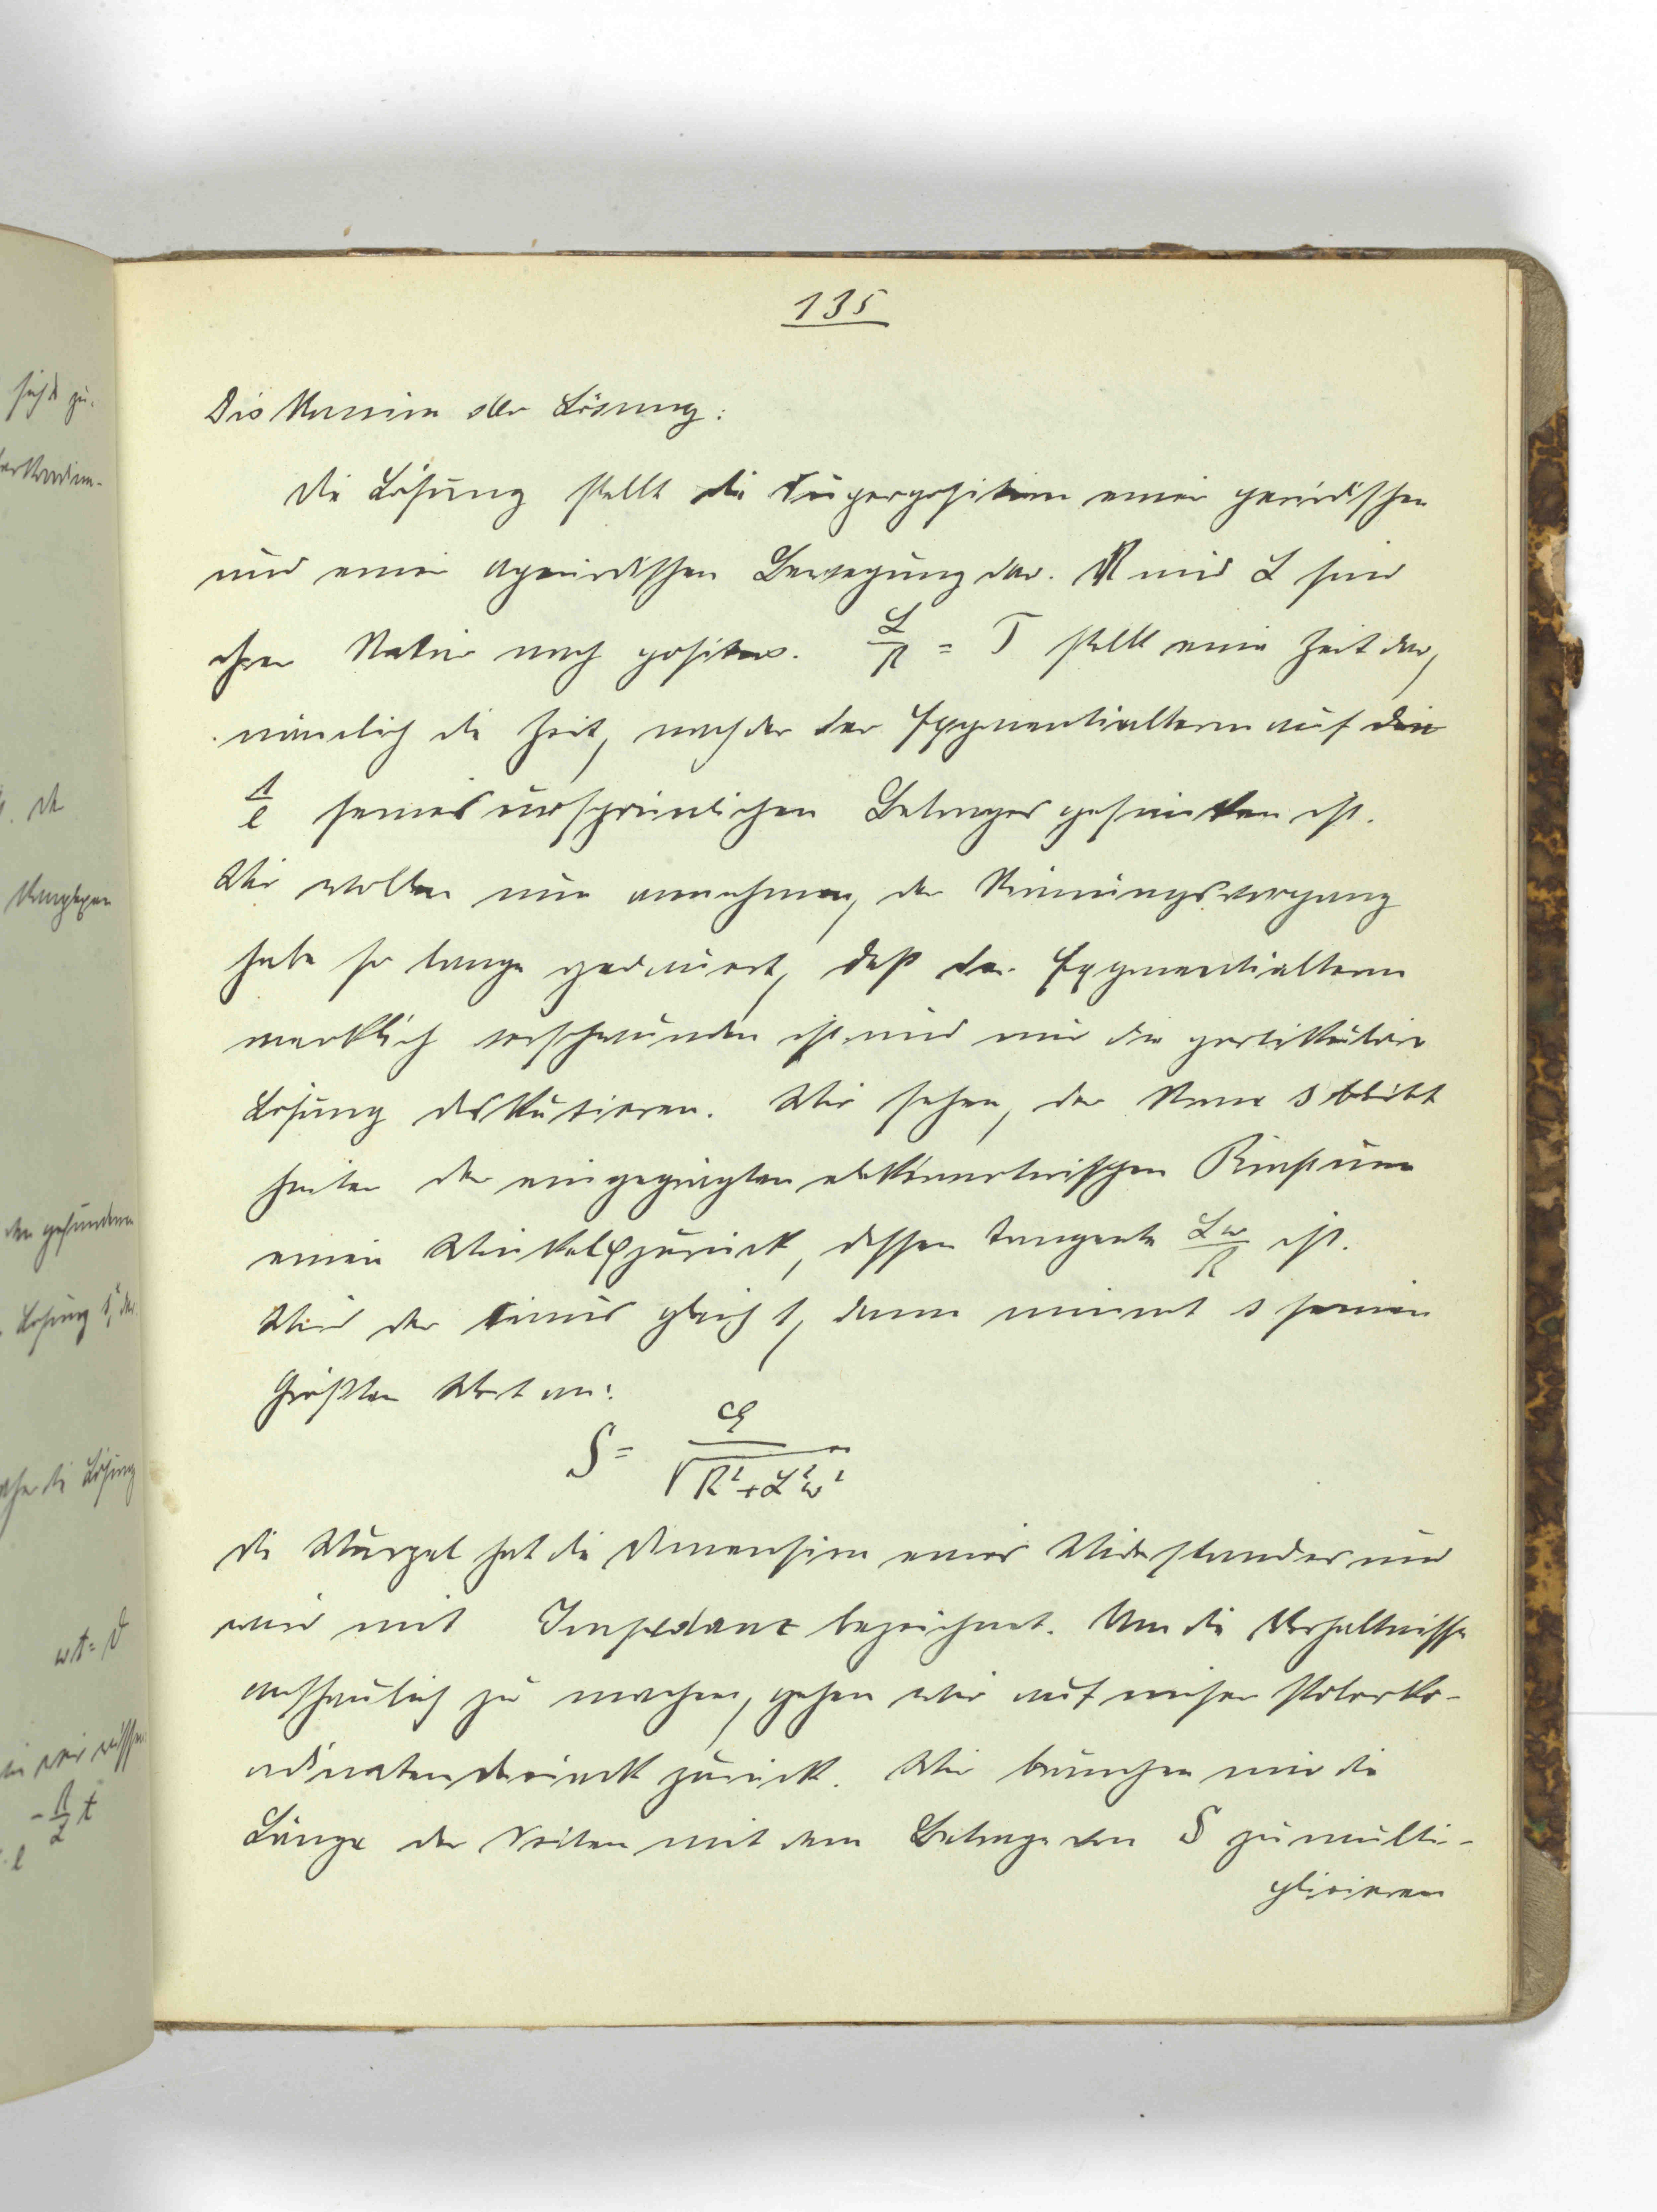 135
Diskussion der Lösung:
Die Lösung stellt die Superposition einer periodischen
und einer aperiodischen Bewegung dar. R und L sind
ihrer Natur nach positiv. L/R = T stellt eine Zeit dar,
nämlich die Zeit, nach der der Exponentialterm auf den
1/e seines ursprünlichen Betrages gesunken ist.
Wir wollen nun annehmen, der Strömungsvorgang
habe so lange gedauert, daß der Exponentialterm
merklich verschwunden ist und nur die partikuläre
Lösung diskutieren. Wir sehen, der Strom s bleibt
hinter der eingeprägten elektromotorischen Kraft um
einen Winkel φ zurück, dessen Tangente Lω/R ist.
Wird der Sinus gleich 1, dann nimmt s seinen
größten Wert an:
S = E/√(R²+L²ω²)
Die Wurzel hat die Dimension eines Widerstandes und
wird mit Impedanz bezeichnet. Um die Verhältnisse
anschaulich zu machen, gehen wir auf unser Polarko-
ordinatendreieck zurück. Wir brauchen nur die
Länge der Seiten mit dem Betrage von S zu multi-
plizieren
sich zu.
Komplexen
den gefundenen
Lösung
die Lösung
ωt = ϑ
wir wissen
- R/L t
e